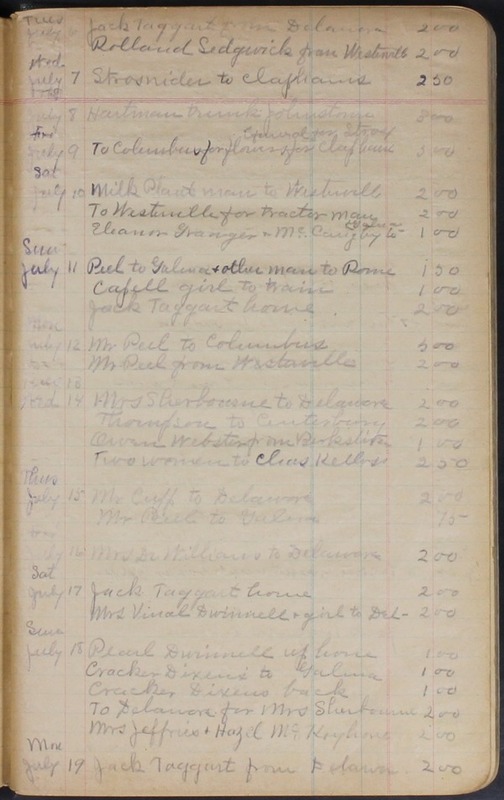 Tues
July 6 Jack Taggart from Delaware 2 00
Rolland Sedgwick from Westville 2 00
Wed
July 7 Strosnider to Claphams 2 50
July 8 Hartman trunk Johnstown
Fri
July 9 To Columbus for flowers for Clapham
Sat
July 10 Milk Plant man to Westville 2 00
To Westville for tractor man 2 00
Eleanor Granger + Mc to 1 00
Sun
July 11 Peel to Galena + other man to Rome 1 50
Cafell girl to train 1 00
Jack Taggart home 2 00
Mon
July 12 Mr Peel to Columbus 5 00
Mr Peel from Westerville 2 00
Wed 14 Mrs Sherbourne to Delaware 2 00
Thompson to Centerburg 2 00
Owen Webster from 1 00
Two women to Chas Kellogs 2 50
Thurs
July 15 Mr Cuff to Delaware 2 00
Mr Peel to Galena 75
July 16 Mrs Dr Williams to Delaware 2 00
Sat
July 17 Jack Taggart home 2 00
Mrs Vinal Dwinnell + girl to Del- 2 00
Sun
July 18 Pearl Dwinnell up home 1 00
Cracker Dixens to Galena 1 00
Cracker Dixens back 1 00
To Delaware for Mrs Sherbourne 2 00
Mrs Jeffries + Hazel Mc 2 00
Mon
July 19 Jack Taggart from Delaware 2 00